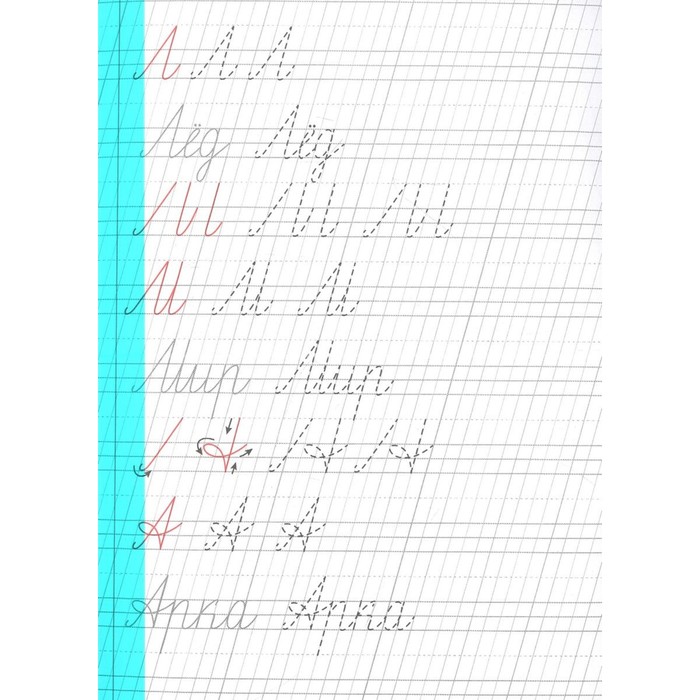 Л Л Л
Лёд Лёд
М М М
Мир Мир
А А А
Арка Арка